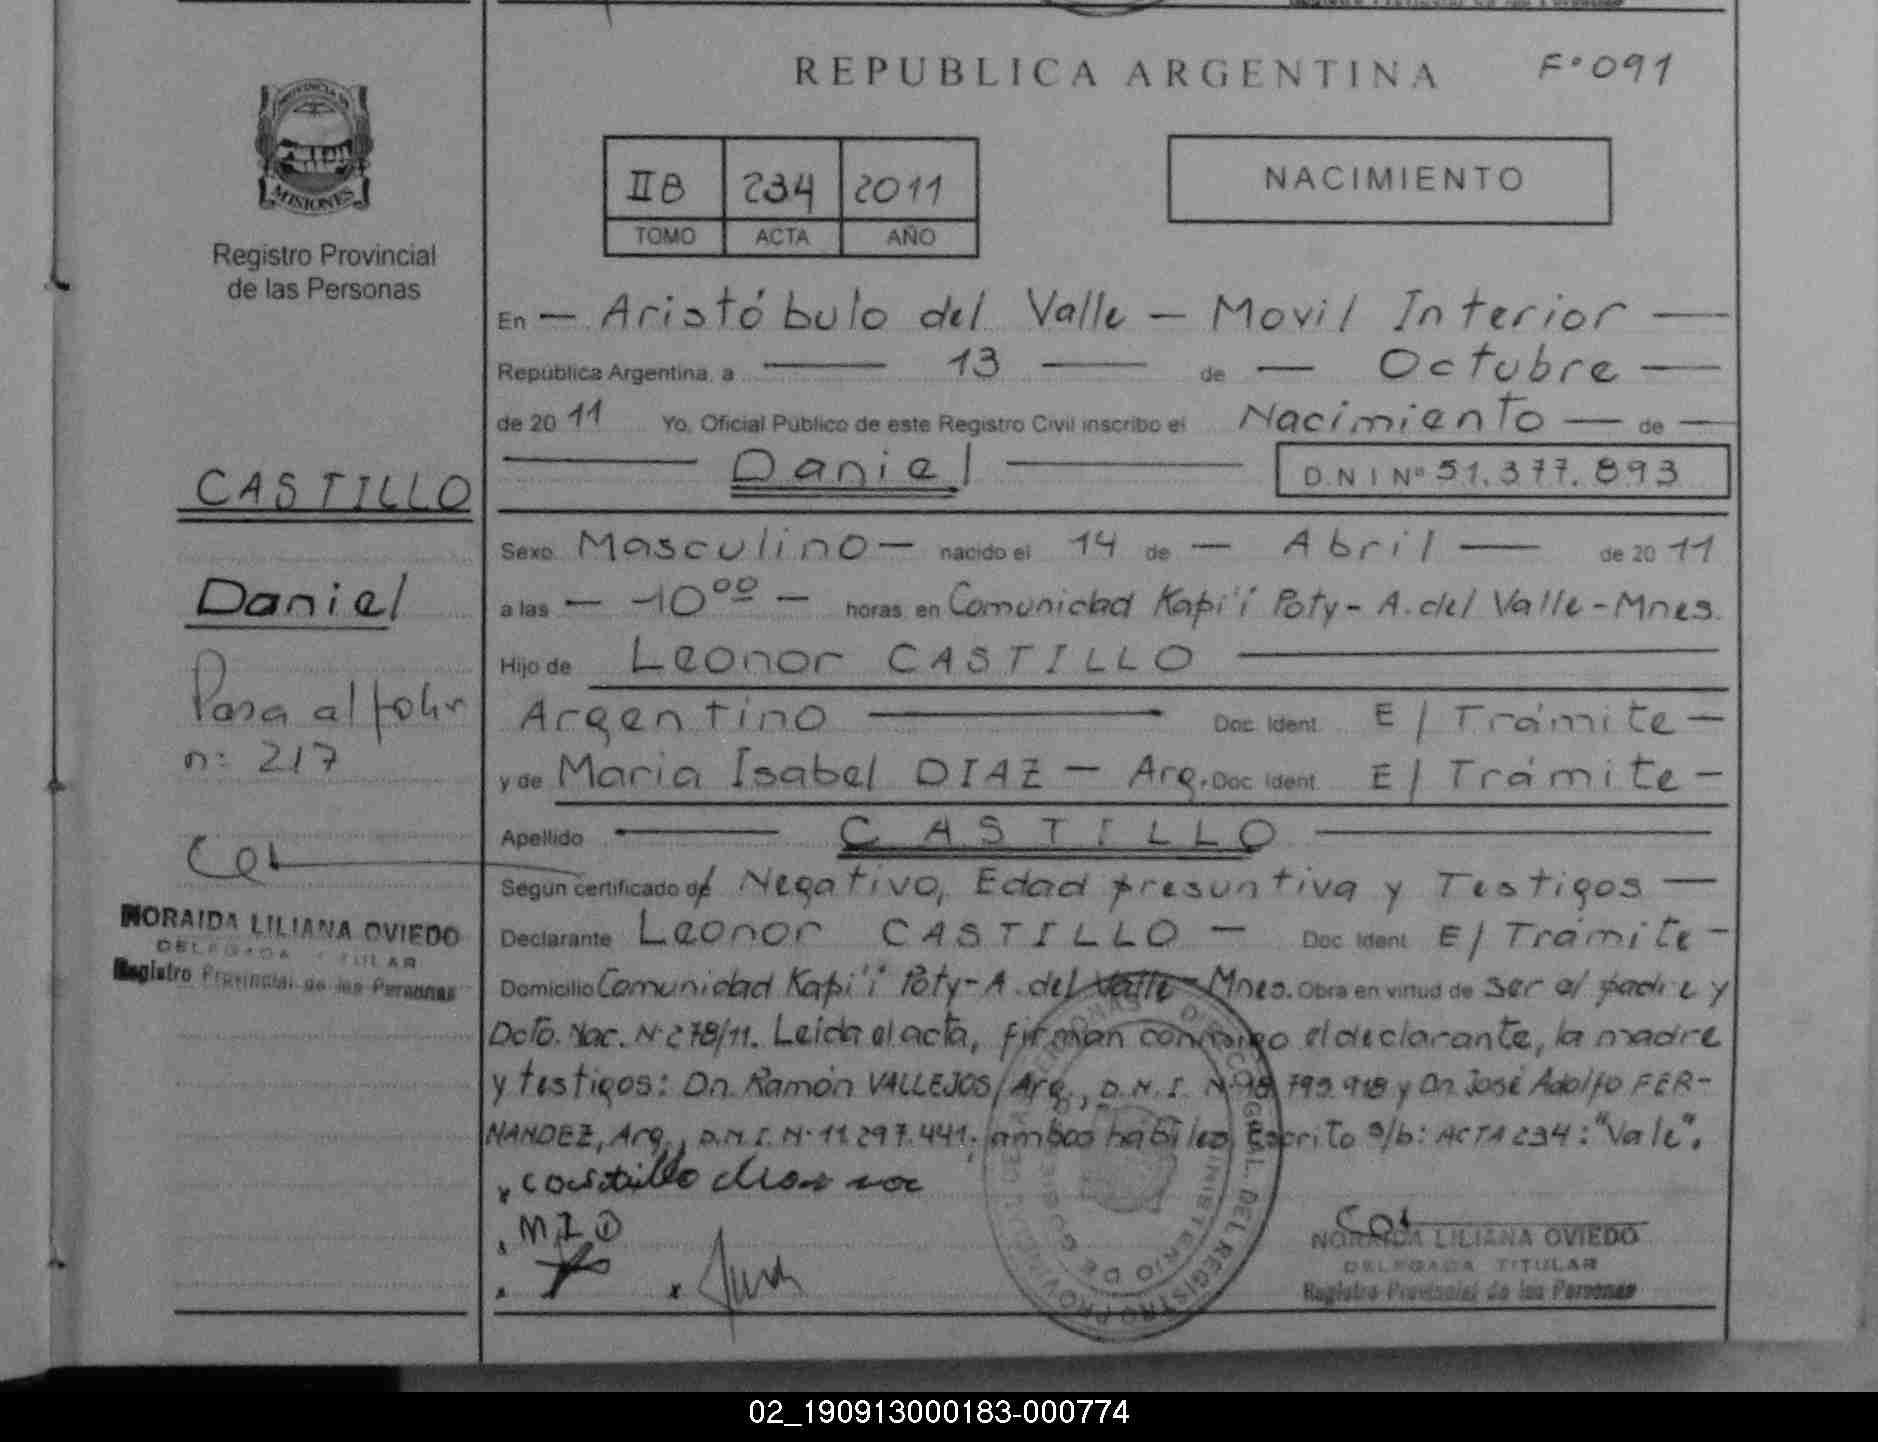 Registro Provincial de las Personas
REPUBLICA ARGENTINA F°091
PROVINCIA DE
MISIONES
Registro Provincial
de las Personas
IIB 234 2011
TOMO ACTA AÑO
NACIMIENTO
En — Aristóbulo del Valle — Movil Interior —
República Argentina, a — 13 — de — Octubre —
de 20 11 Yo, Oficial Público de este Registro Civil inscribo el Nacimiento — de —
— Daniel —
D.N.I Nº 51.377.893
CASTILLO
Daniel
Pasa al folio
n: 217
NORAIDA LILIANA OVIEDO
DELEGADA TITULAR
Registro Provincial de las Personas
Sexo Masculino — nacido el 14 de — Abril — de 20 11
a las — 10ºº — horas, en Comunidad Kapi'i Poty - A. del Valle - Mnes.
Hijo de Leonor CASTILLO —
Argentino — Doc. Ident. E/Trámite —
y de Maria Isabel DIAZ — Arg. Doc. Ident. E/Trámite —
Apellido — CASTILLO —
Según certificado de Negativo, Edad presuntiva y Testigos —
Declarante Leonor CASTILLO — Doc. Ident. E/Trámite —
Domicilio Comunidad Kapi'i Poty - A. del Valle - Mnes. Obra en virtud de ser el padre y
Dcto. Nac. N° 278/11. Leida el acta, firman conmigo el declarante, la madre
y testigos: Dn. Ramón VALLEJOS, Arg., D.N.I. N° 18.795.918 y Dn José Adolfo FER-
NANDEZ, Arg., D.N.I. N° 11.297.441; ambos hábiles. Escrito s/b: ACTA 234: "Vale".
castillo
M I D
NORAIDA LILIANA OVIEDO
DELEGADA TITULAR
Registro Provincial de las Personas
02_190913000183-000774